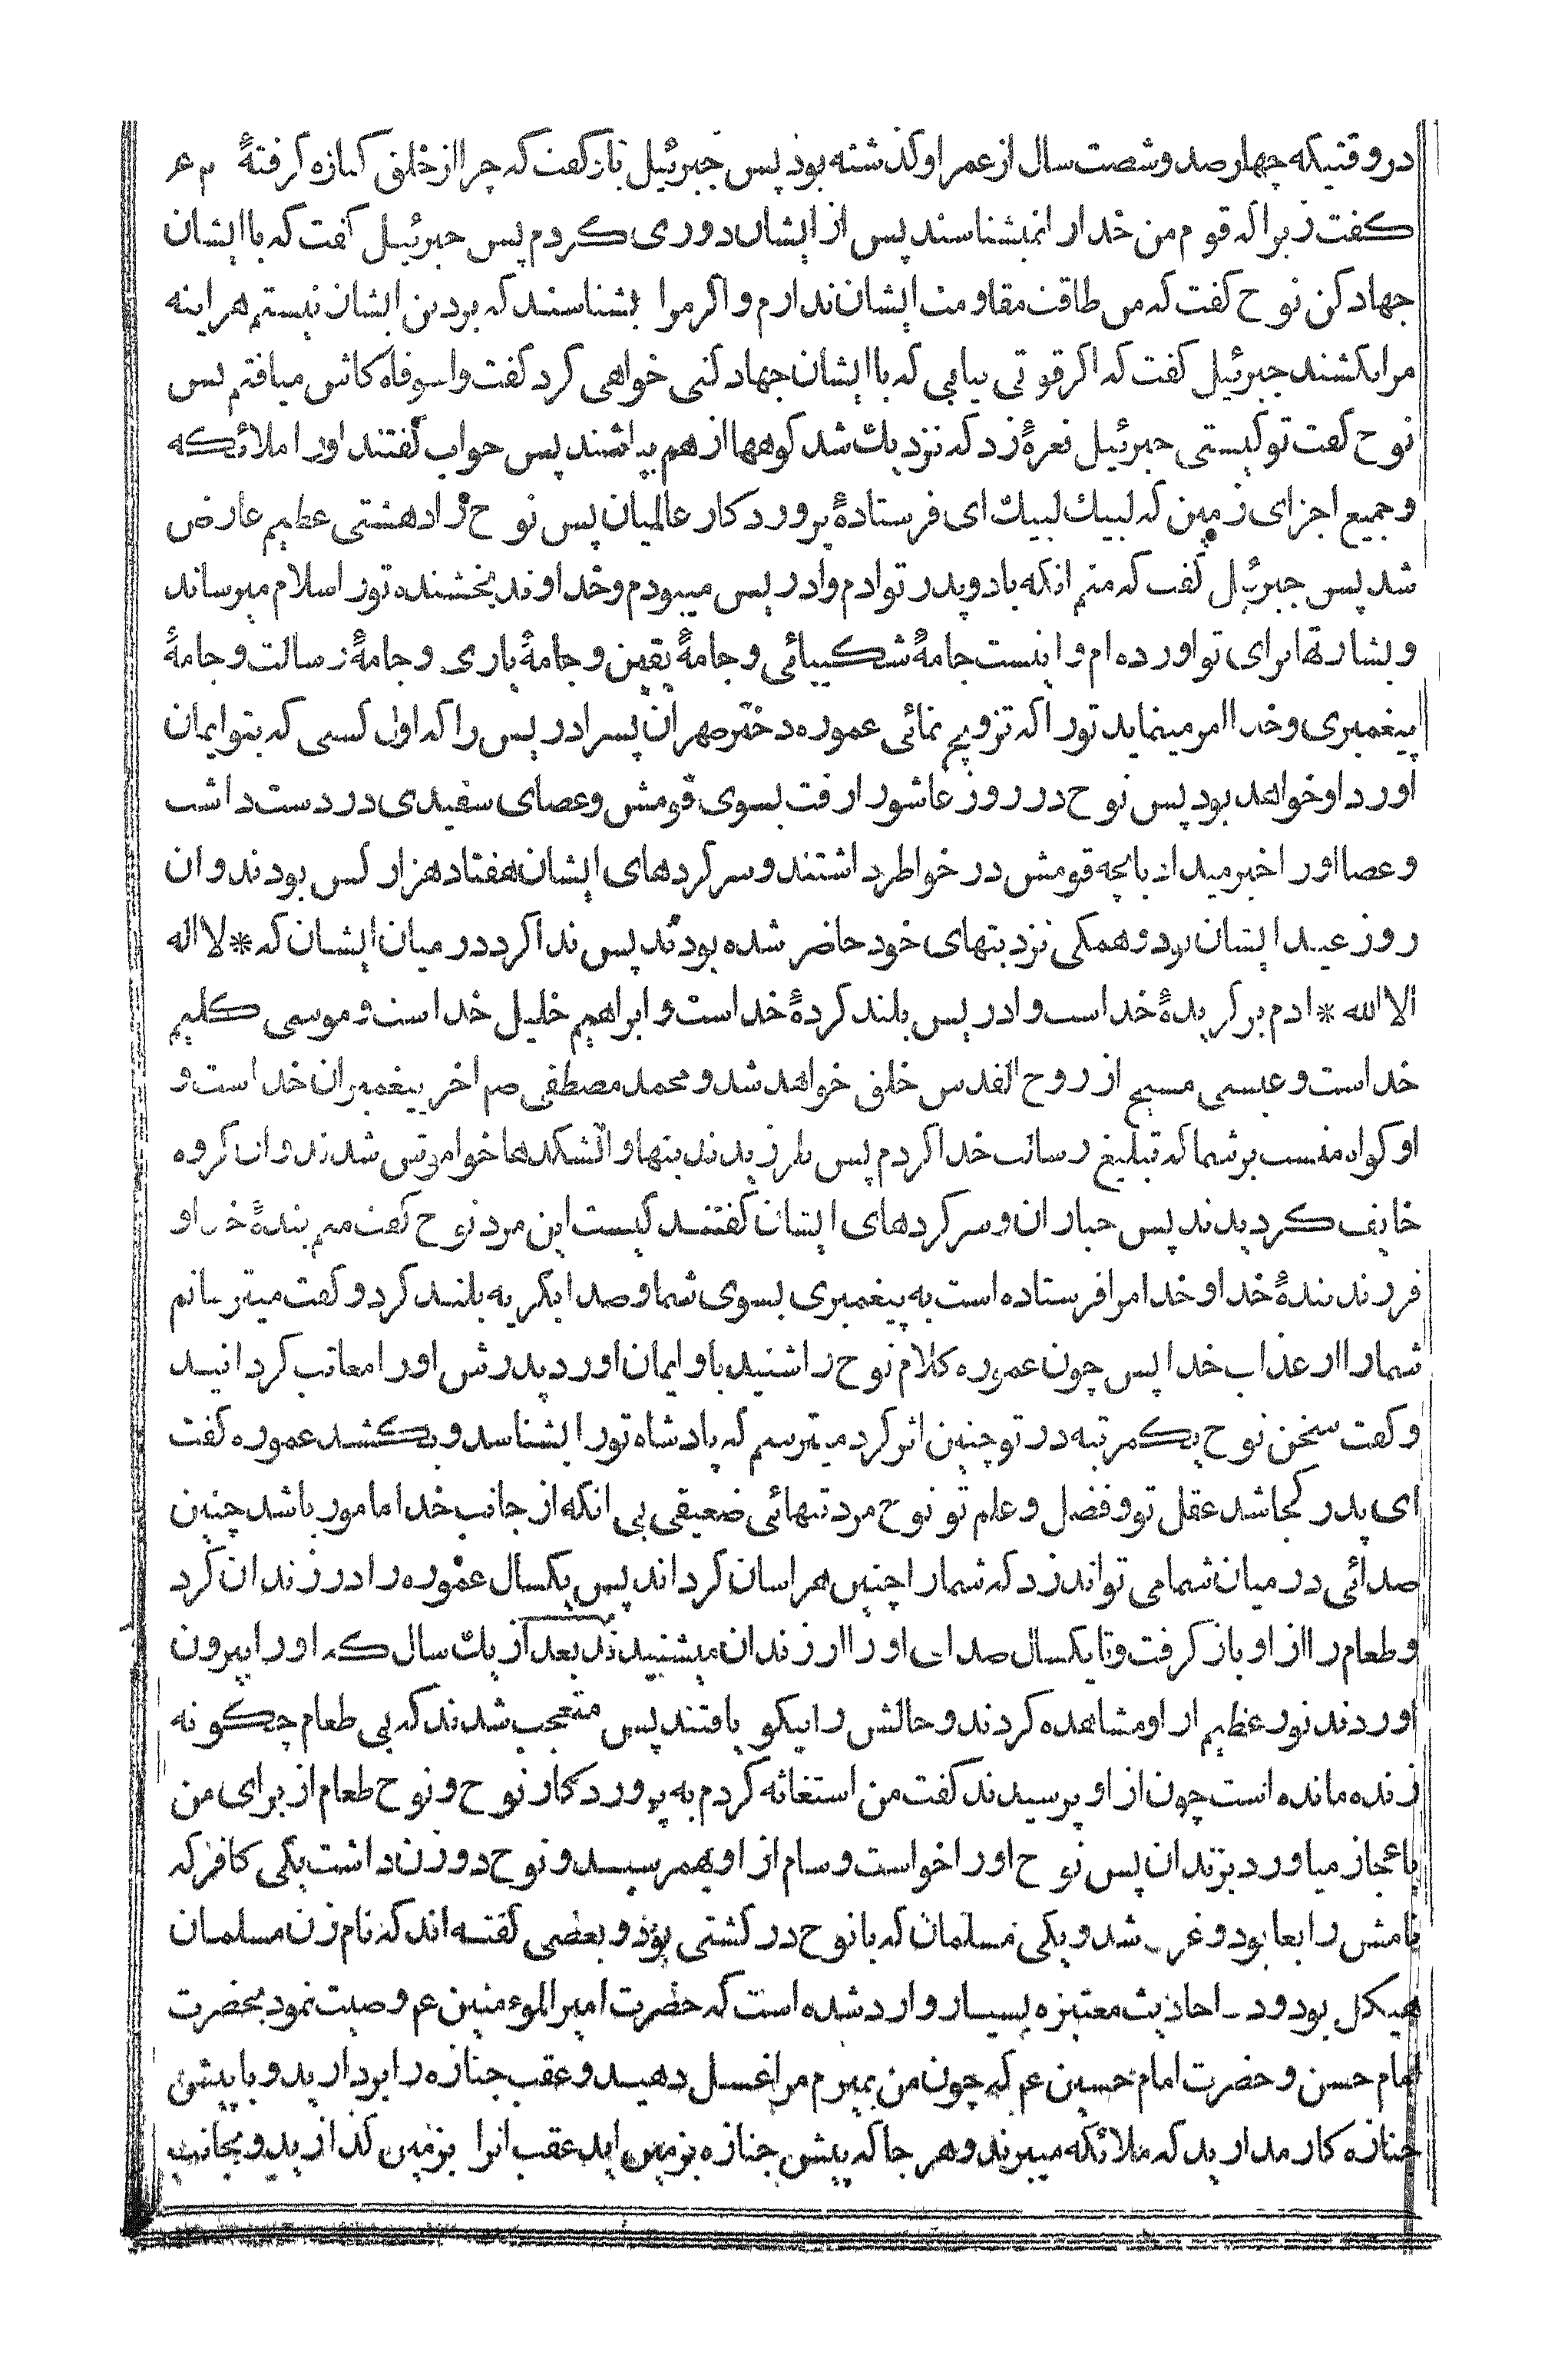 در وقتیکه چهار صد و شصت سال از عمر او کذشته بود پس جبرئیل باز کفت که چرا از خلق کناره کرفتهٔ م ع
کفت زیرا که قوم من خدارا نمیشناسند پس از ایشان دوری کردم پس جبرئیل کفت که با ایشان
جهاد کن نوح کفت که من طاقت مقاومت ایشان ندارم و اکر مرا بشناسند که بر دین ایشان نیستم هراینه
مرا بکشند جبرئیل کفت که اکر قوتی بیابی که با ایشان جهاد کنی خواهی کرد کفت واسوقاه کاش میافتم پس
نوح کفت تو کیستی جبرئیل نعرهٔ زد که نزدیك شد کوهها از هم بپاشند پس جواب کفتند اورا ملائکه
و جمیع اجزای زمین که لبیك لبیك ای فرستادهٔ پروردکار عالمیان پس نوح را دهشتی عظیم عارض
شد پس جبرئیل کفت که منم انکه با دو پدر تو ادم و ادریس میبودم و خداوند بخشنده تورا سلام میرساند
و بشارتها برای تو اورده ام و اینست جامهٔ شکیبائی و جامهٔ یقین و جامهٔ یاری و جامهٔ رسالت و جامهٔ
پیغمبری و خدا امر مینماید تورا که تزویج نمائی عموره دختر مهران پسر ادریس را که اول کسی که بتو ایمان
اورد او خواهد بود پس نوح در روز عاشورا رفت بسوی قومش و عصای سفیدی در دست داشت
و عصا اورا خبر میداد بانچه قومش در خواطر داشتند و سرکردهای ایشان هفتاد هزار کس بودند و ان
روز عید ایشان بود و همکی نزد بتهای خود حاضر شده بودند پس ندا کرد در میان ایشان که * لا اله
الا الله * ادم برکزیدهٔ خداست و ادریس بلند کردهٔ خداست و ابراهیم خلیل خداست و موسی کلیم
خداست و عیسی مسیح از روح القدس خلق خواهد شد و محمد مصطفی صم اخر پیغمبران خداست و
او کواه منست بر شما که تبلیغ رسالت خدا کردم پس بلرزیدند بتها و اتشکدها خواموش شدند و ان کروه
خایف کردیدند پس جباران و سرکردهای ایشان کفتند کیست این مرد نوح کفت منم بندهٔ خدا و
فرزند بندهٔ خدا و خدا مرا فرستاده است به پیغمبری بسوی شما و صدا بکریه بلند کرد و کفت میترسانم
شمارا از عذاب خدا پس چون عموره کلام نوح را شنید باو ایمان اورد پدرش اورا معاتب کردانید
و کفت سخن نوح یکمرتبه در تو چنین اثر کرد میترسم که پادشاه تورا بشناسد و بکشد عموره کفت
ای پدر کجا شد عقل تو و فضل و علم تو نوح مرد تنهائی ضعیفی بی انکه از جانب خدا مامور باشد چنین
صدائی در میان شما می تواند زد که شمارا چنین هراسان کرداند پس یکسال عموره را در زندان کرد
و طعام را از او باز کرفت و تا یکسال صدای اورا از زندان میشنیدند بعد از یك سال که اورا بیرون
اوردند نور عظیم از او مشاهده کردند و حالش را نیکو یافتند پس متعجب شدند که بی طعام چکونه
زنده مانده است چون از او پرسیدند کفت من استغاثه کردم به پروردکار نوح و نوح طعام از برای من
باعجاز میاورد بزندان پس نوح اورا خواست و سام از او بهمرسید و نوح دو زن داشت یکی کافر که
نامش رابعا بود و غرق شد و یکی مسلمان که با نوح در کشتی بود و بعضی کفته اند که نام زن مسلمان
هیکل بود و در احادیث معتبره بسیار وارد شده است که حضرت امیر المومنین عم وصیت نمود بحضرت
امام حسن و حضرت امام حسین عم که چون من بمیرم مرا غسل دهید و عقب جنازه را بردارید و با پیش
جنازه کار مدارید که ملائکه میبرند و هر جا که پیش جنازه بزمین اید عقب انرا بزمین کذارید و بجانب